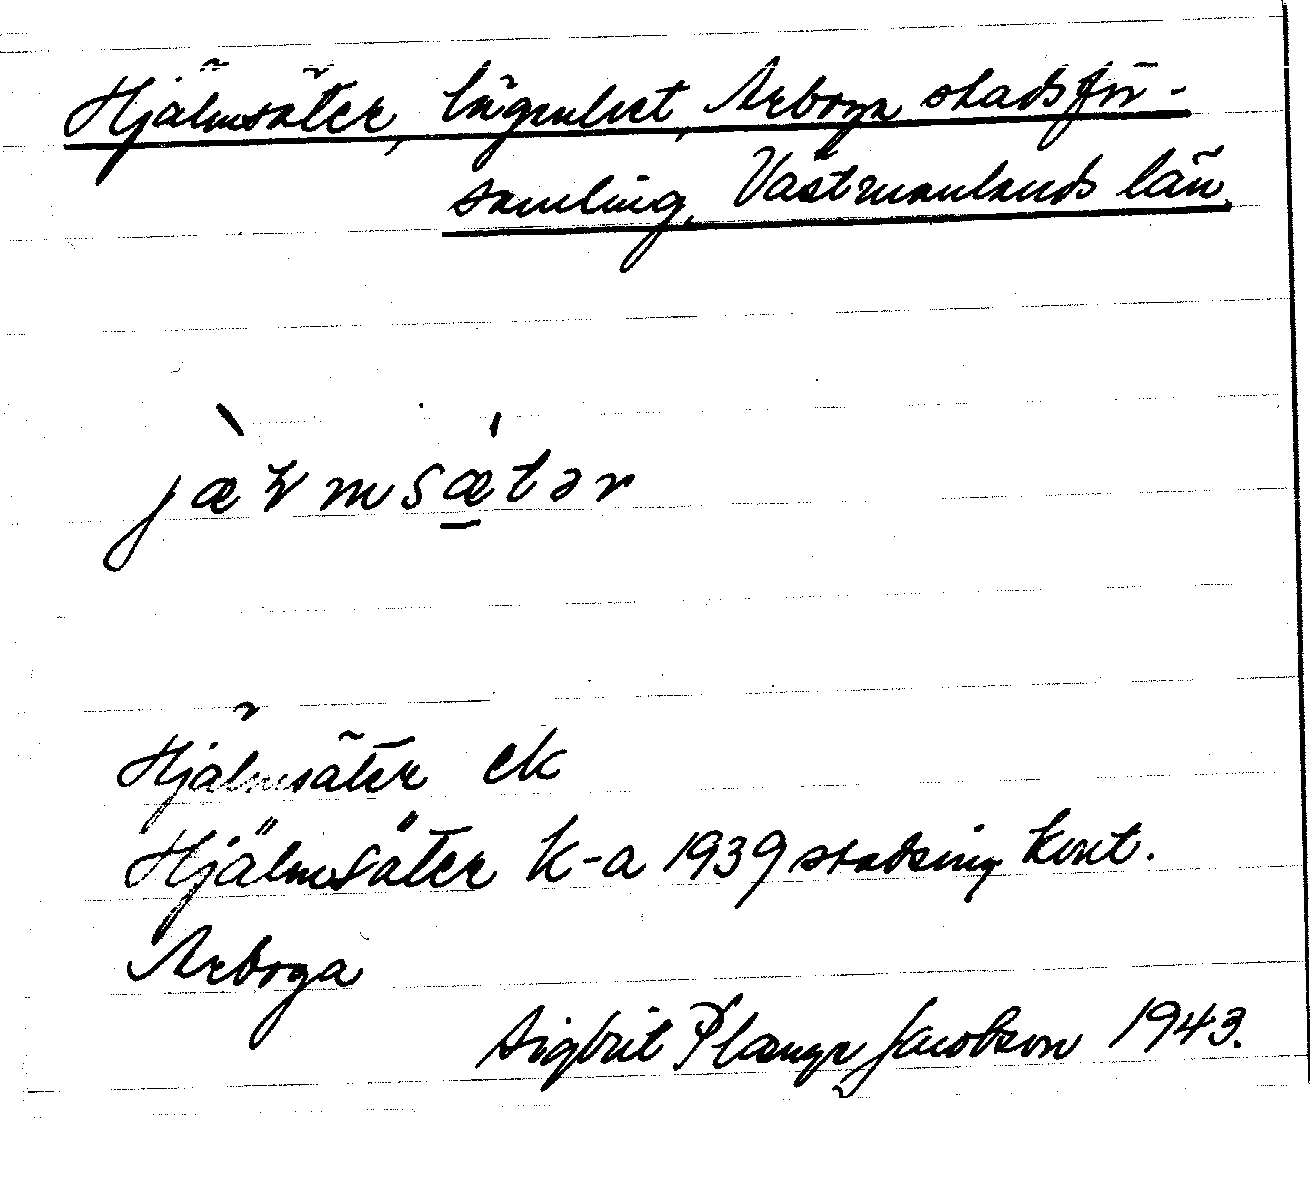 Hjälmsäter, lägenhet, Arboga stadsför-
samling, Västmanlands län.
jæ̀ɽmsǽ̱tər
Hjälmsäter ek
Hjälmsäter k-a 1939 stadsing kont.
Arboga
Sigbrit Plænge Jacobson 1943.